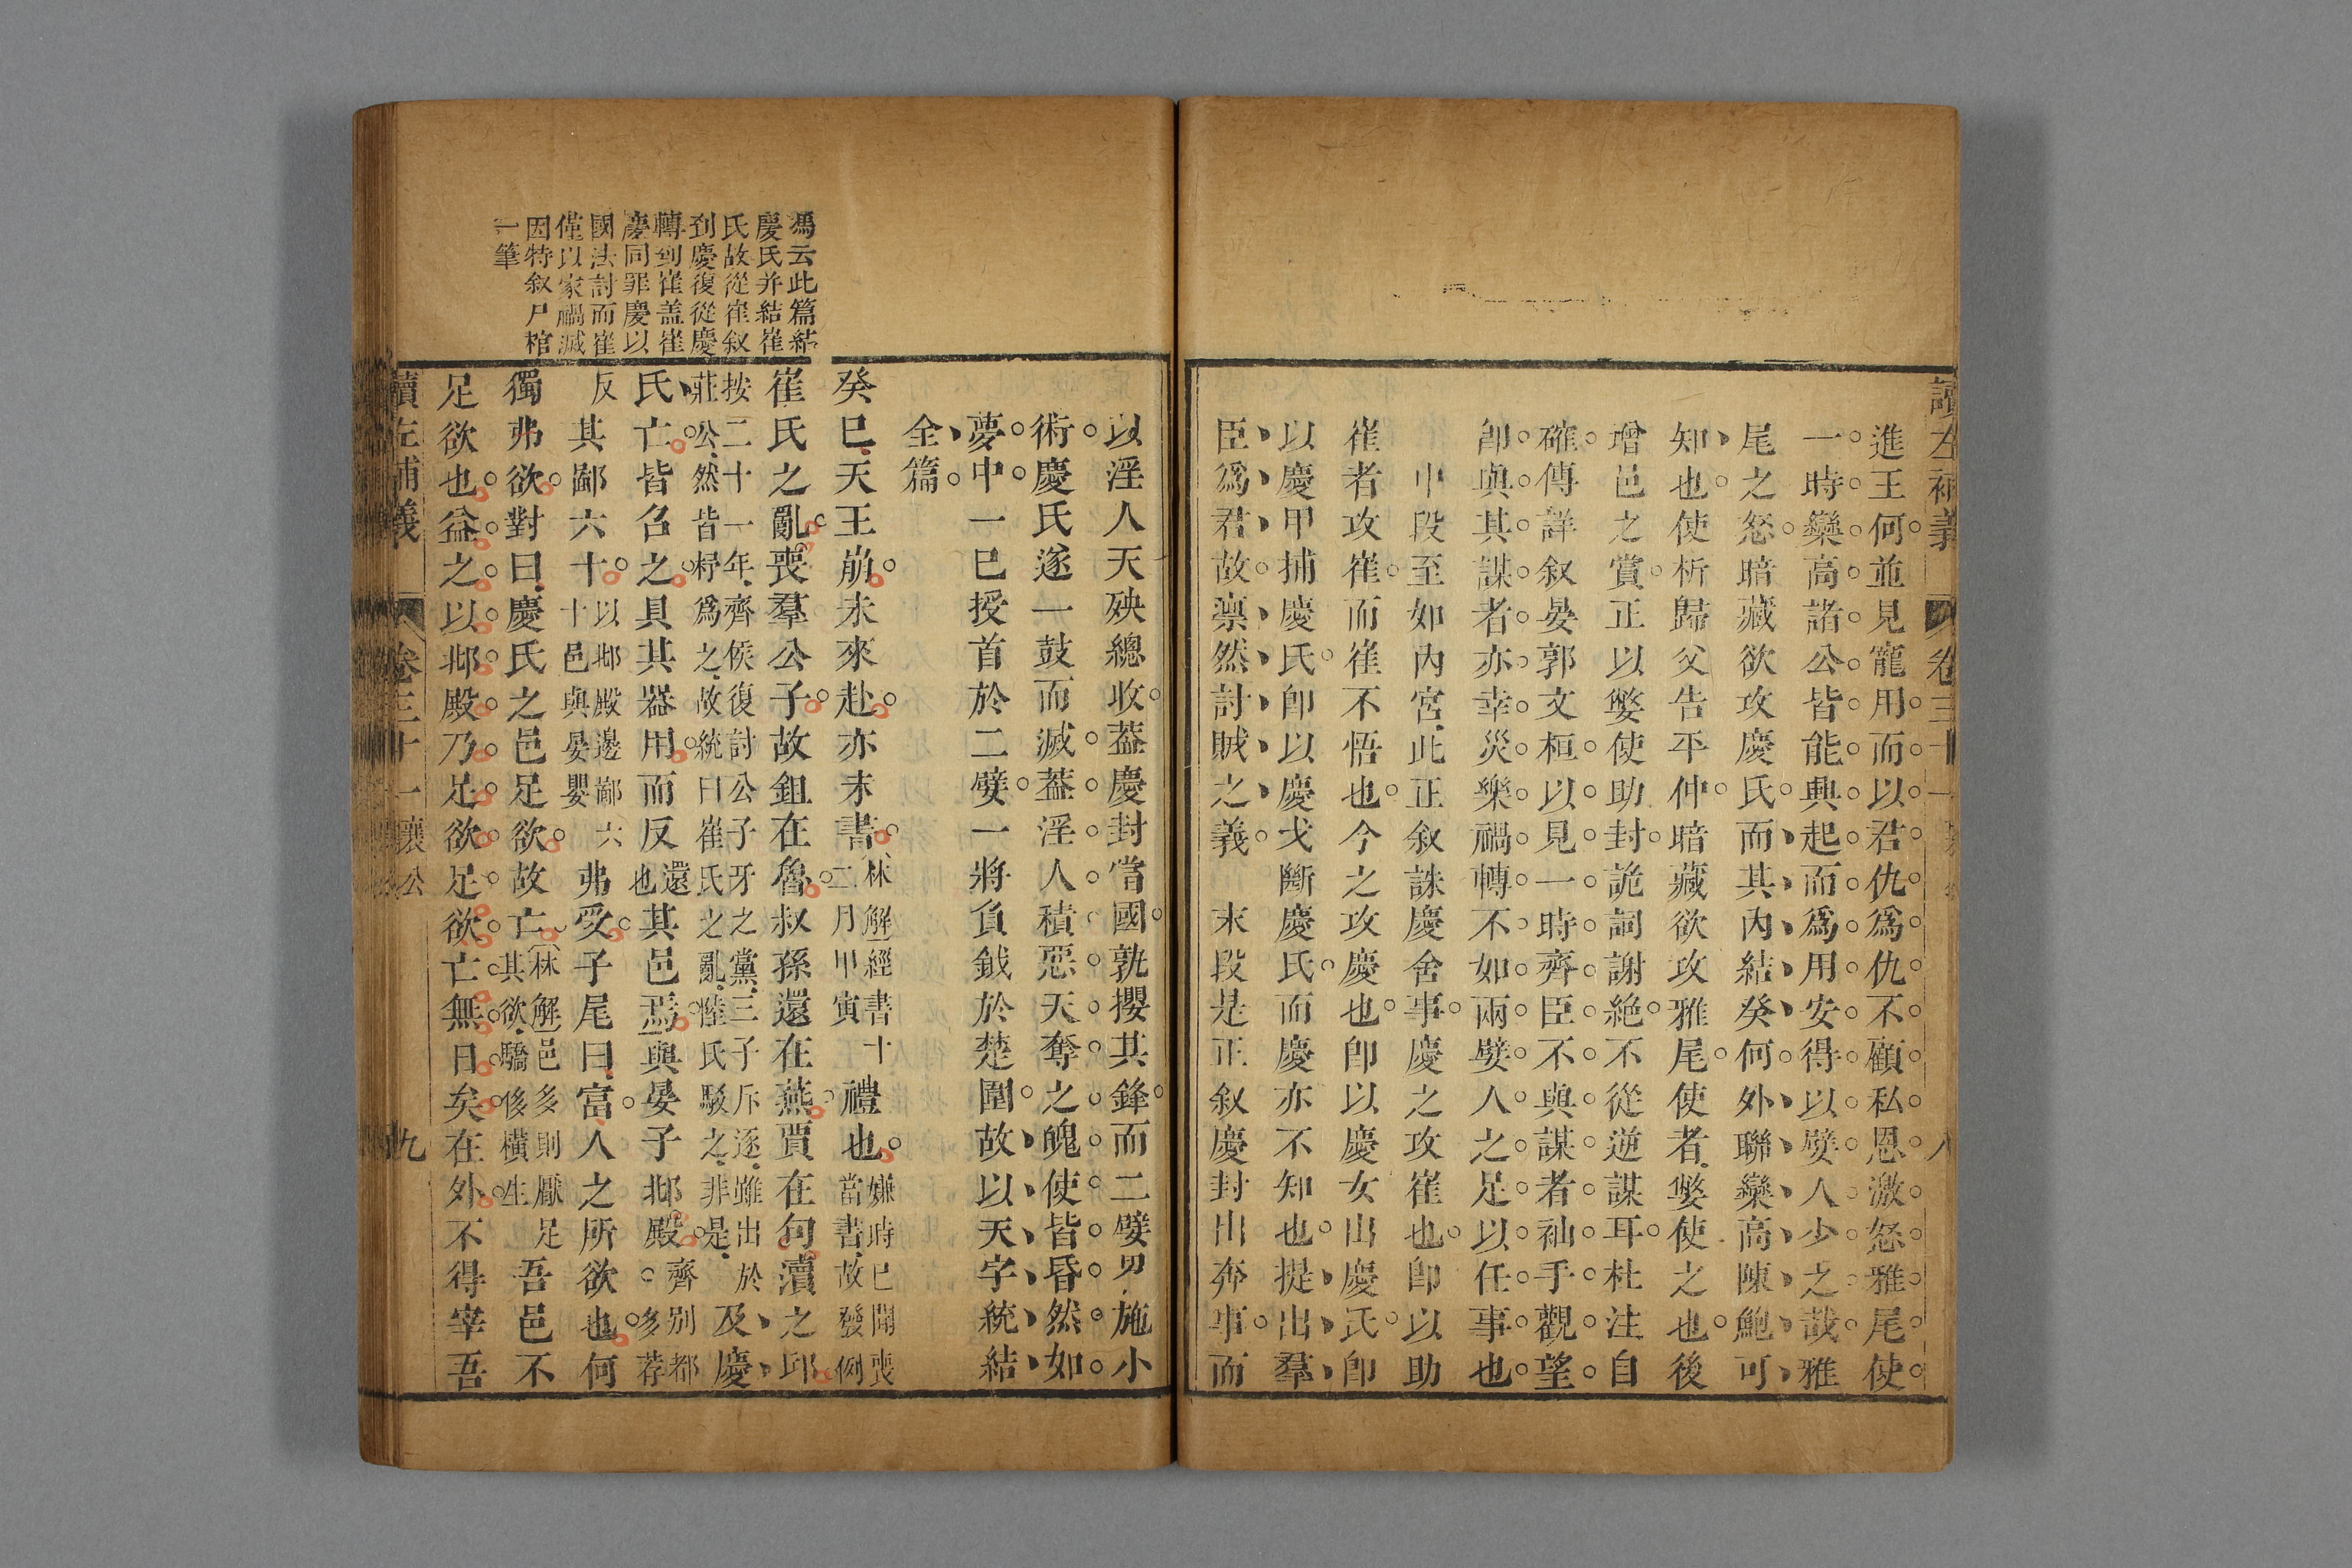 進王何並見寵用而以君仇爲仇不顧私恩激怒雅尾使
一時欒高諸公皆能興起而爲用安得以嬖人少之哉雅
尾之怒暗藏欲攻慶氏而其內結癸何外聯欒高陳鮑可
知也使析歸父告平仲暗藏欲攻雅尾使者嬖使之也後
增邑之賞正以嬖使助封詭詞謝絶不從逆謀耳杜注自
確傳詳叙晏郭文桓以見一時齊臣不與謀者袖手觀望
卽與其謀者亦幸災樂禍轉不如兩嬖人之足以任事也
中段至如內宮此正叙誅慶舍事慶之攻崔也卽以助
崔者攻崔而崔不悟也今之攻慶也卽以慶女出慶氏卽
以慶甲捕慶氏卽以慶戈斷慶氏而慶亦不知也提出羣
臣爲君故禀然討賊之義 末段是正叙慶封出奔事而
讀左補義 卷三十一 八
以淫人天殃總收葢慶封當國孰攖其鋒而二嬖男施小
術慶氏遂一鼓而滅葢淫人積惡天奪之魄使皆昏然如
夢中一已授首於二嬖一將負鉞於楚圍故以天字統結
全篇
癸巳天王崩未來赴亦未書林解經書十二月甲寅禮也嫌時已聞喪當書故發例
崔氏之亂喪羣公子故鉏在魯叔孫還在燕賈在句瀆之邱
按二十一年齊侯復討公子牙之黨三子斥逐雖出於莊公然皆杼爲之故統曰崔氏之亂陸氏駁之非是及慶
氏亡皆召之具其器用而反還也其邑焉與晏子邶殿齊別都多荐
反其鄙六十以邶殿邊鄙六十邑與晏嬰弗受子尾曰富人之所欲也何
獨弗欲對曰慶氏之邑足欲故亡林解邑多則厭足其欲驕侈橫生吾邑不
足欲也益之以邶殿乃足欲足欲亡無日矣在外不得宰吾
讀左補義 卷三十一襄公 九
馮云此篇結
慶氏并結崔
氏故從崔叙
到慶復從慶
轉到崔盖崔
慶同罪慶以
國法討而崔
僅以家禍滅
因特叙尸棺
一筆